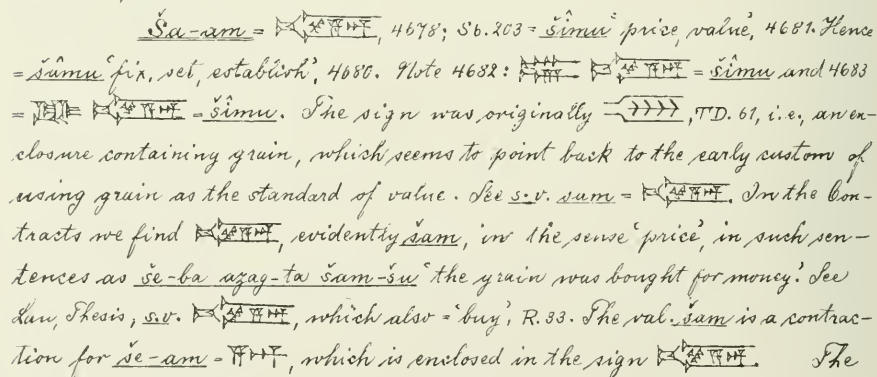 Ša-am = , 4678; Sb. 203 = šîmu 'price, value', 4681. Hence
= šâmu 'fix, set, establish', 4680. Note 4682: = šîmu and 4683
= = šîmu. The sign was originally , TD. 61, i.e., an en-
closure containing grain, which seems to point back to the early custom of
using grain as the standard of value. See s.v. sum = . In the Con-
tracts we find , evidently šam, in the sense 'price', in such sen-
tences as še-ba azag-ta šam-šu 'the grain was bought for money.' See
Lau, Thesis, s.v. , which also = 'buy', R. 33. The val. šam is a contrac-
tion for še-am = , which is enclosed in the sign . The